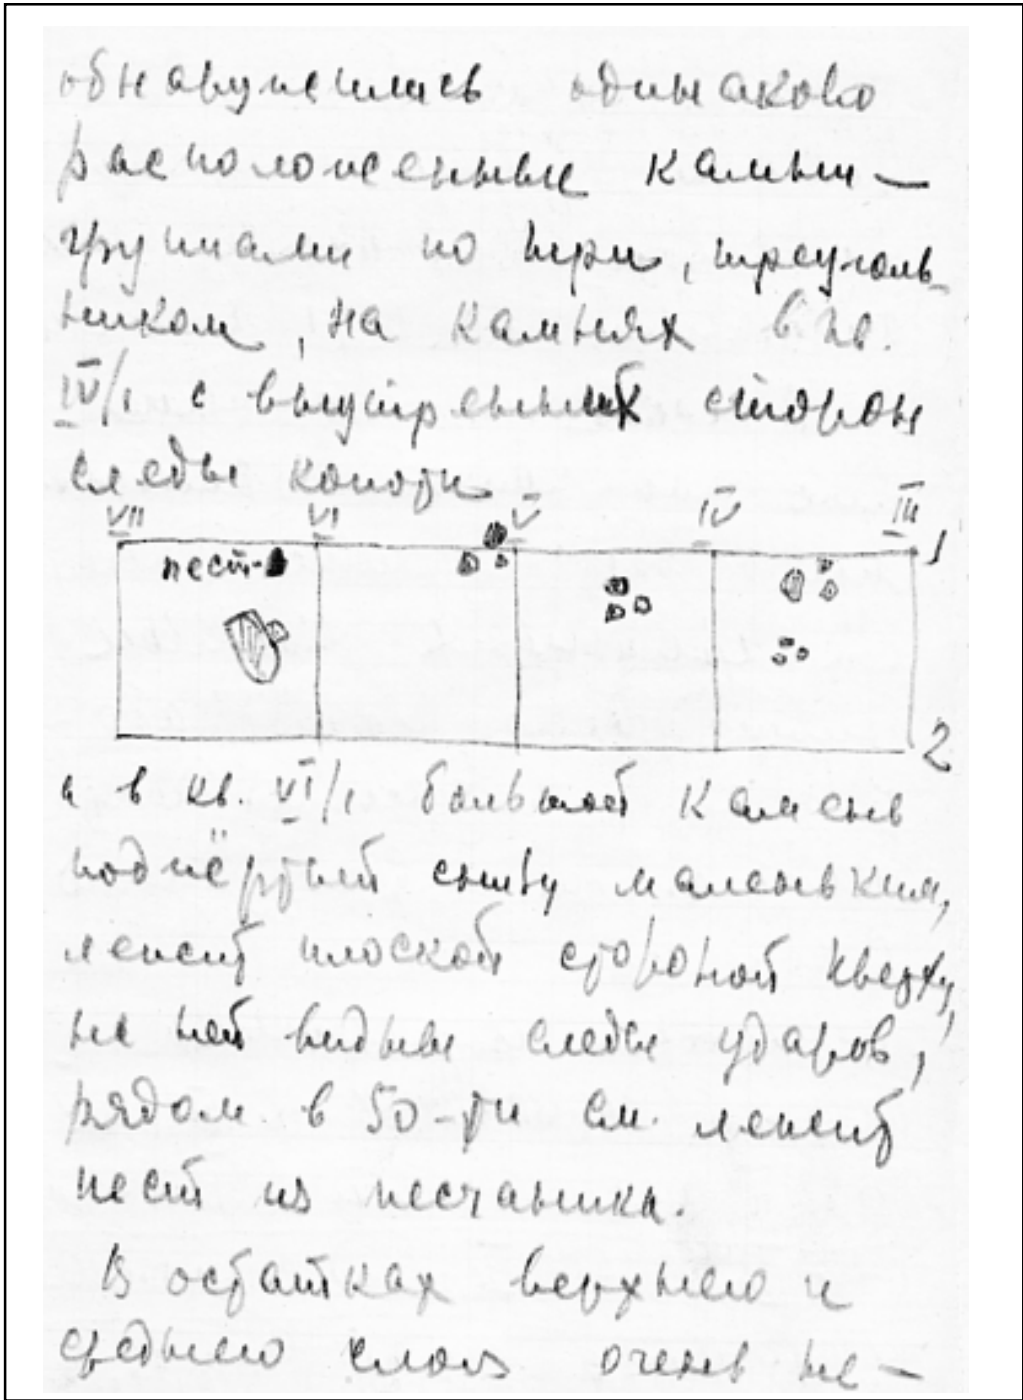 обнаружились одинаково
расположенные камни —
группами по три, треуголь-
ником, на камнях в кв.
IV/1 с внутренних сторон
следы копоти
VII VI V IV III 1
пест-
2
а в кв. VI/1 большой камень
подпёртый снизу маленьким,
лежит плоской стороной кверху,
на ней видны следы ударов,
рядом в 50-ти см. лежит
пест из песчаника.
В остатках верхнего и
среднего слоя очень не-